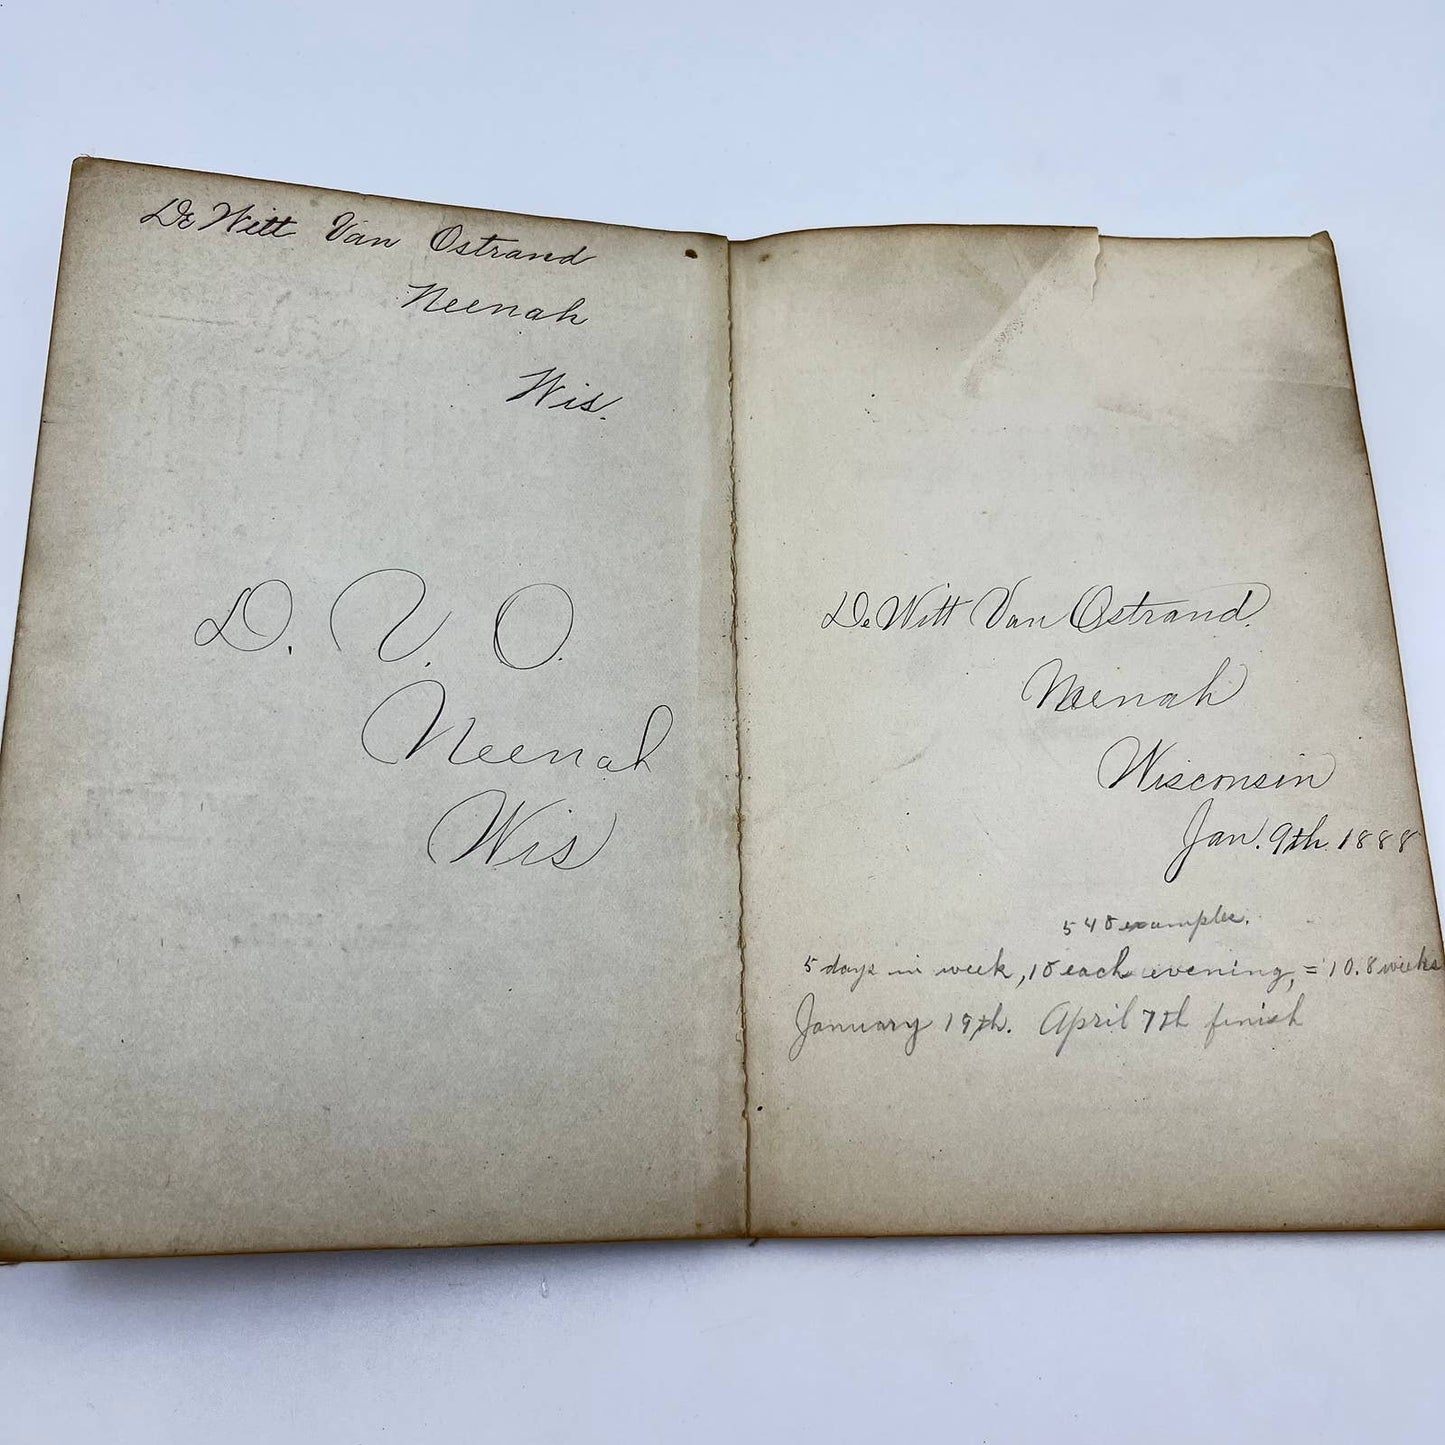 De Witt Van Ostrand
Neenah
Wis.
D. V. O.
Neenah
Wis
De Witt Van Ostrand.
Neenah
Wisconsin
Jan. 9th. 1888
540 examples.
5 days in week, 10 each evening, = 10.8 weeks
January 19th. April 7th finish